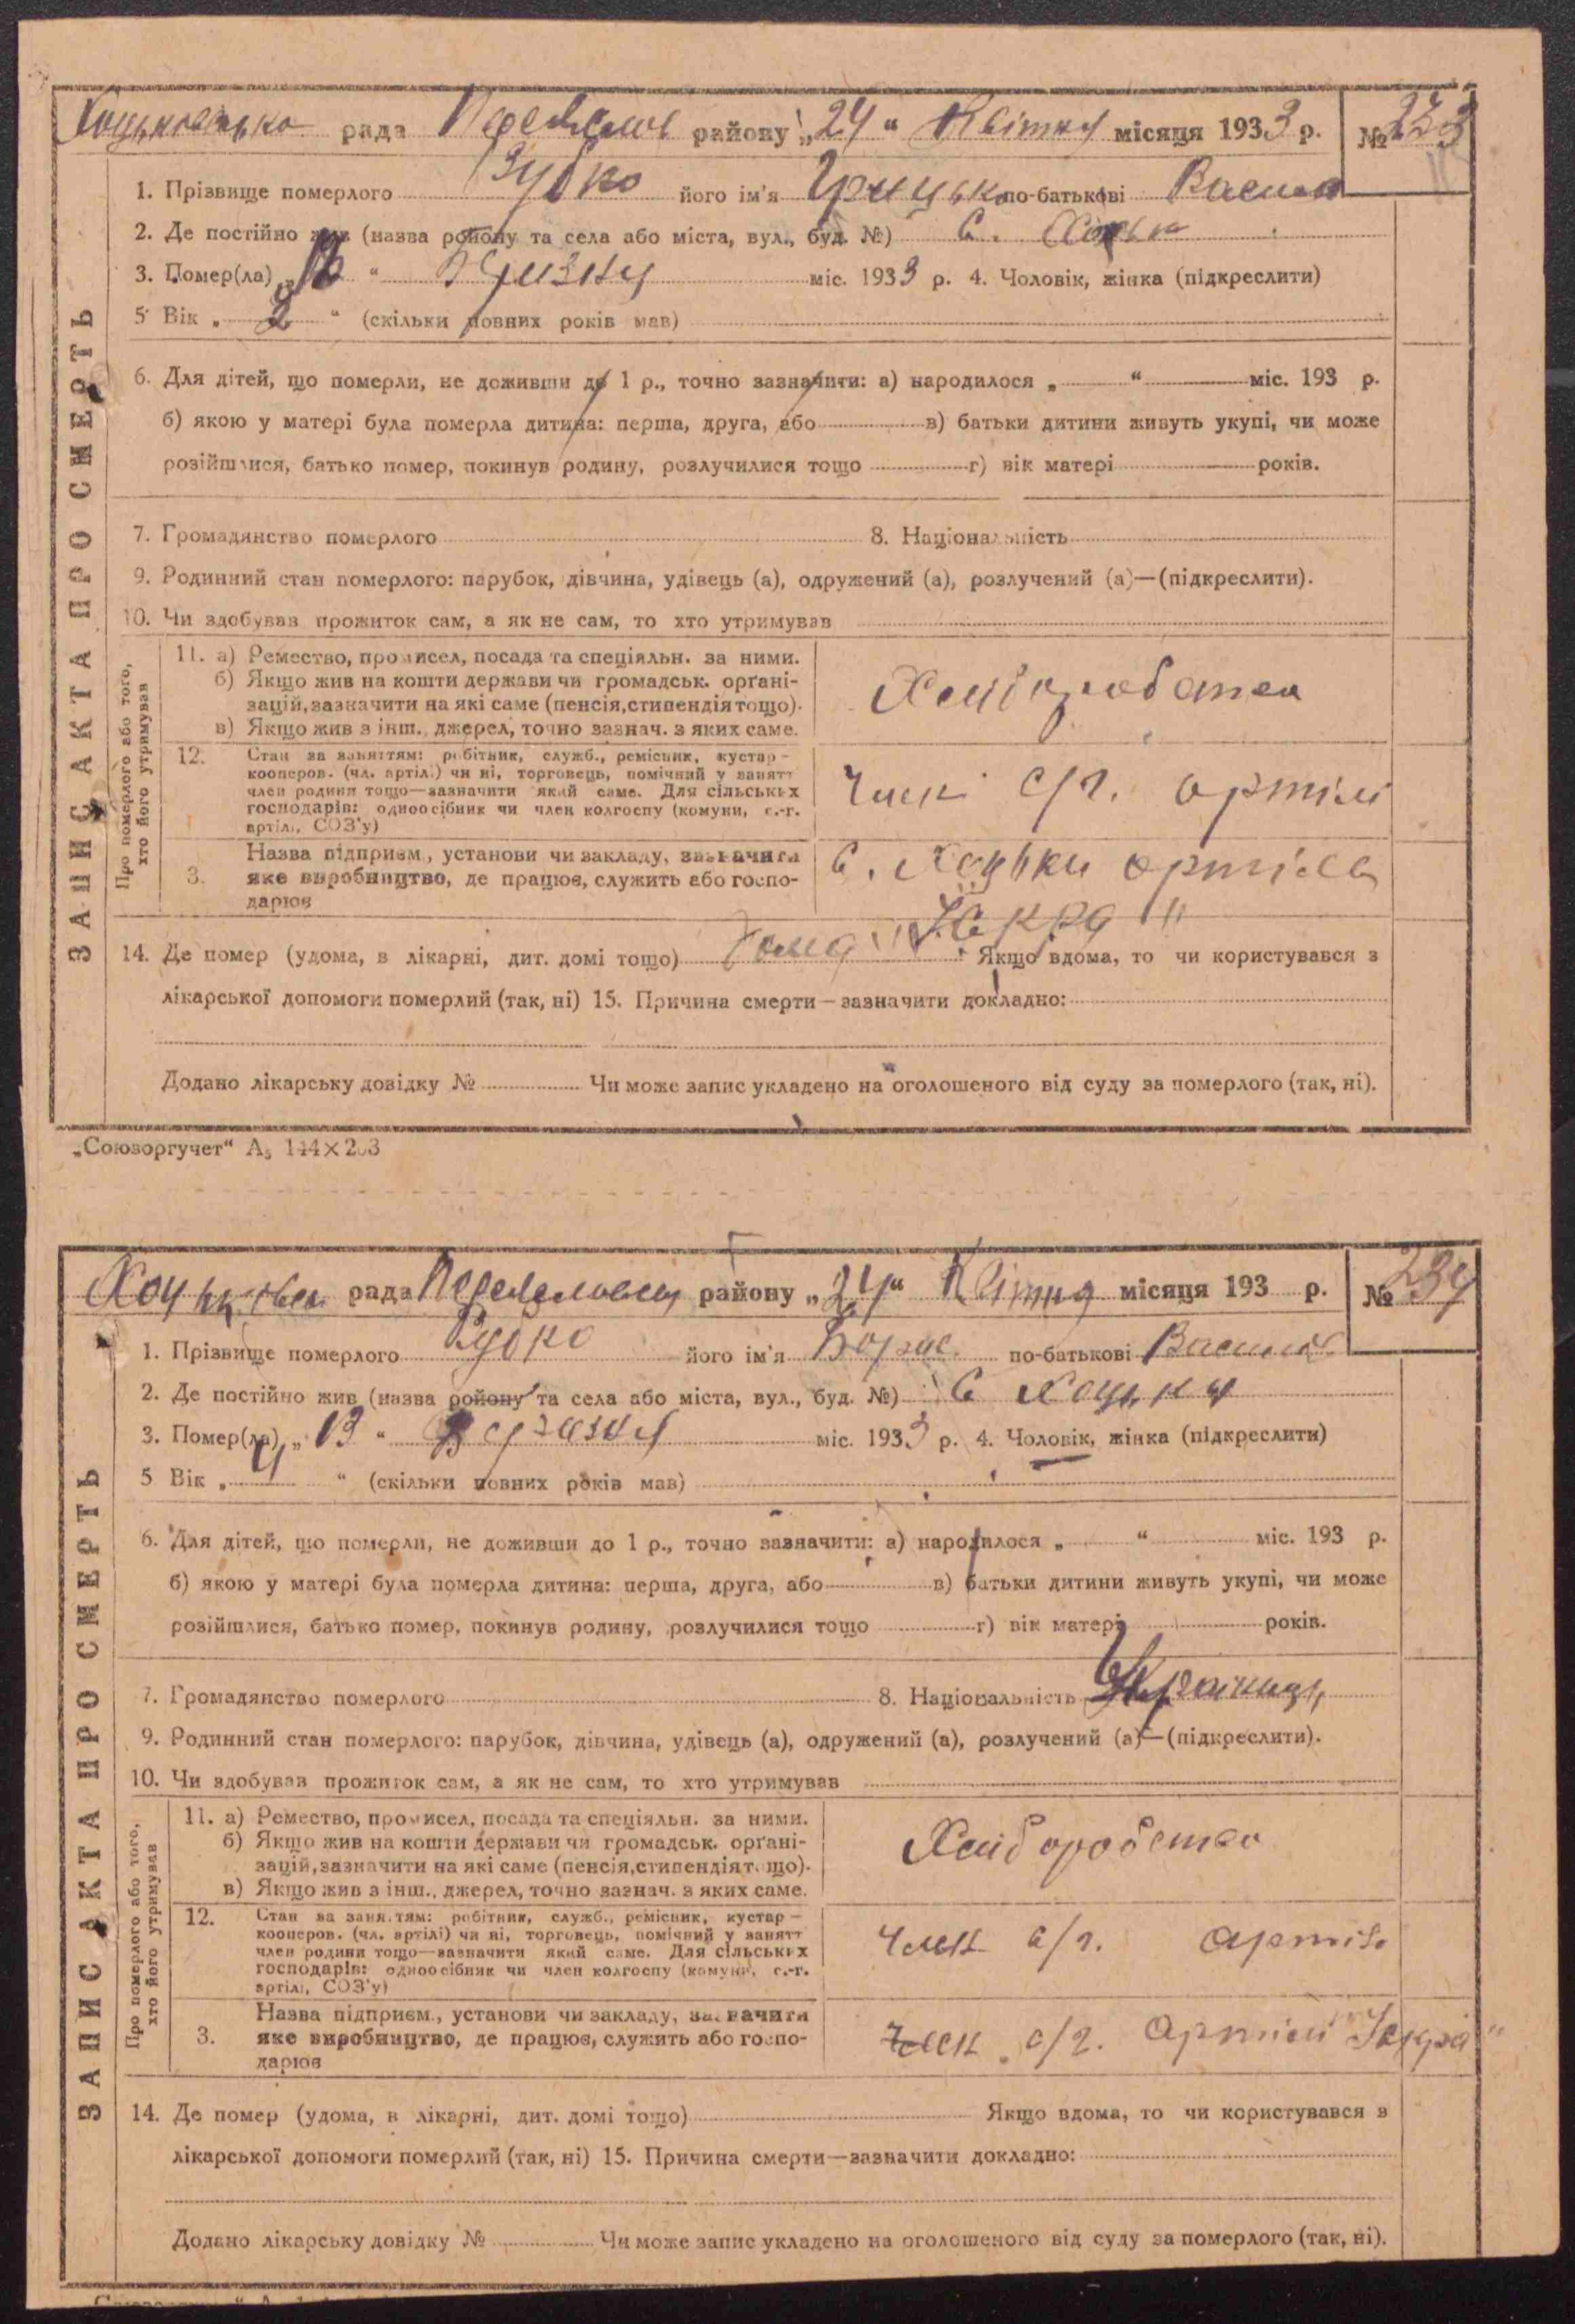 Хоцьковсько рада Переяслов району „24“ Квітня місяця 1933 р. № 233
1. Прізвище померлого Зубко його ім'я Грицько по-батькові Васил
2. Де постійно жив (назва ройону та села або міста, вул., буд. №) С. Хоцьк
3. Помер(ла) „ “ Березня міс. 1933 р. 4. Чоловік, жінка (підкреслити)
5 Вік „ 2 “ (скільки повних років мав)
6. Для дітей, що померли, не доживши до 1 р., точно зазначити: а) народилося „ “ міс. 193 р.
б) якою у матері була померла дитина: перша, друга, або в) батьки дитини живуть укупі, чи може
розійшлися, батько помер, покинув родину, розлучилися тощо г) вік матері років.
7. Громадянство померлого 8. Національність
9. Родинний стан померлого: парубок, дівчина, удівець (а), одружений (а), розлучений (а)—(підкреслити).
10. Чи здобував прожиток сам, а як не сам, то хто утримував
Про померлого або того, хто його утримував
11. а) Ремество, промисел, посада та спеціяльн. за ними.
б) Якщо жив на кошти держави чи громадськ. орґані-
зацій, зазначити на які саме (пенсія, стипендія тощо).
в) Якщо жив з інш., джерел, точно зазнач. з яких саме.
Хліборобство
12. Стан за заняттям: робітник, служб., ремісник, кустар—
кооперов. (чл. артілі) чи ні, торговець, помічний у занятт
член родини тощо—зазначити який саме. Для сільських
господарів: одноосібник чи член колгоспу (комуни, с.-г.
артілі, СОЗ'у)
Член с/г. артілі
3. Назва підприєм., установи чи закладу, зазначити
яке виробництво, де працює, служить або госпо-
дарює
С. Хоцьки артіль
"Іскра"
14. Де помер (удома, в лікарні, дит. домі тощо) Дома Якщо вдома, то чи користувався з
лікарської допомоги померлий (так, ні) 15. Причина смерти—зазначити докладно:
Додано лікарську довідку № Чи може запис укладено на оголошеного від суду за померлого (так, ні).
ЗАПИС АКТА ПРО СМЕРТЬ
„Союзоргучет“ А5 144×203
Хоцьковск рада Переяславськ району „24“ Квітня місяця 193 р. № 234
1. Прізвище померлого Зубко його ім'я Борис по-батькові Василів
2. Де постійно жив (назва ройону та села або міста, вул., буд. №) С Хоцьки
3. Помер(ла) „ 13 “ Березня міс. 1933 р. 4. Чоловік, жінка (підкреслити)
5 Вік „ 4 “ (скільки повних років мав)
6. Для дітей, що померли, не доживши до 1 р., точно зазначити: а) народилося „ “ міс. 193 р.
б) якою у матері була померла дитина: перша, друга, або в) батьки дитини живуть укупі, чи може
розійшлися, батько помер, покинув родину, розлучилися тощо г) вік матері років.
7. Громадянство померлого 8. Національність Українець
9. Родинний стан померлого: парубок, дівчина, удівець (а), одружений (а), розлучений (а)—(підкреслити).
10. Чи здобував прожиток сам, а як не сам, то хто утримував
Про померлого або того, хто його утримував
11. а) Ремество, промисел, посада та спеціяльн. за ними.
б) Якщо жив на кошти держави чи громадськ. орґані-
зацій, зазначити на які саме (пенсія, стипендія тощо).
в) Якщо жив з інш., джерел, точно зазнач. з яких саме.
Хліборобство
12. Стан за заняттям: робітник, служб., ремісник, кустар—
кооперов. (чл. артілі) чи ні, торговець, помічний у занятт
член родини тощо—зазначити який саме. Для сільських
господарів: одноосібник чи член колгоспу (комуни, с.-г.
артілі, СОЗ'у)
Член с/г. артілі
3. Назва підприєм., установи чи закладу, зазначити
яке виробництво, де працює, служить або госпо-
дарює
Член с/г. артілі "Іскра"
14. Де помер (удома, в лікарні, дит. домі тощо) Якщо вдома, то чи користувався з
лікарської допомоги померлий (так, ні) 15. Причина смерти—зазначити докладно:
Додано лікарську довідку № Чи може запис укладено на оголошеного від суду за померлого (так, ні).
ЗАПИС АКТА ПРО СМЕРТЬ